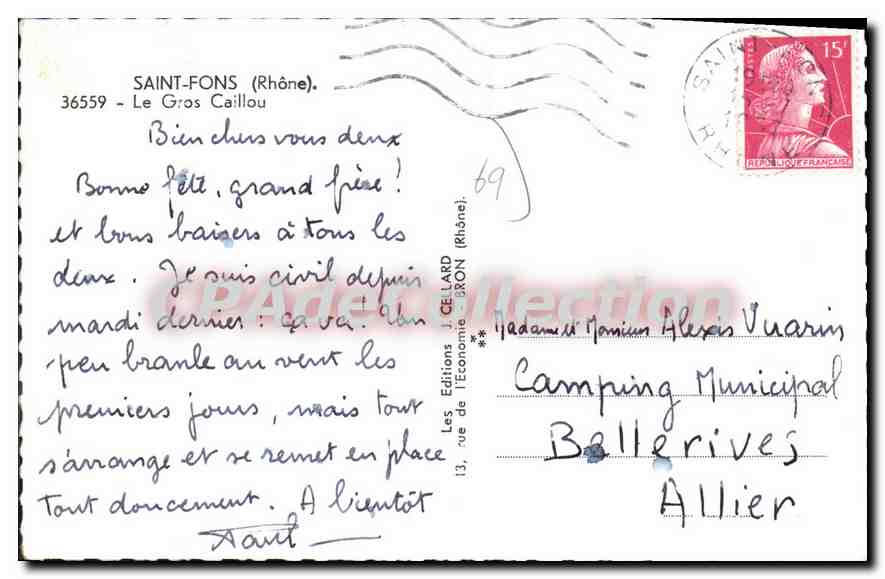 SAINT-FONS (Rhône).
36559 - Le Gros Caillou
Bien chers vous deux
Bonne fête, grand frère !
et bons baisers à tous les
deux. Je suis civil depuis
mardi dernier : ça va ! Un
peu branle au vent les
premiers jours, mais tout
s'arrange et se remet en place
tout doucement. A bientôt
Les Editions J. CELLARD
13, rue de l'Economie BRON (Rhône).
**
69
SAINT
15F
POSTES
REPUBLIQUE FRANÇAISE
Madame et Monsieur Alexis Vuarin
Camping Municipal
Bellerives
Allier
CPAdeCollection